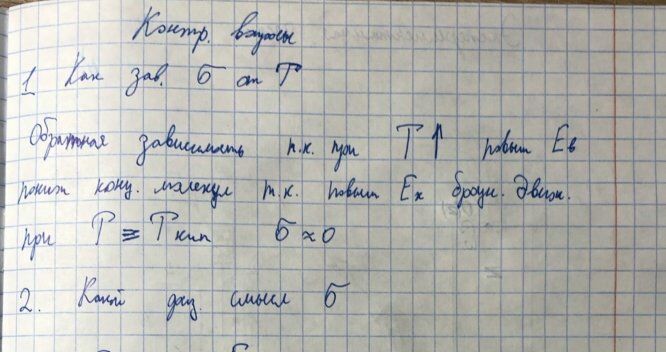 Контр. вопросы
1 Как зав. б от T
Обратная зависимость т.к. при T↑ повыш Eв
пониж конц. молекул т.к. повыш Eк броун. движ.
при T ≡ Tкип б ≈ 0
2. Какой физ. смысл б